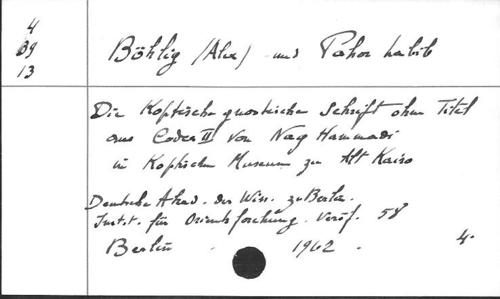 4
B9
13
Böhlig (Alex) und Pahor Labib
Die Koptische gnostische Schrift ohne Titel
aus Codex II von Nag Hammadi
in Koptischen Museum zu Alt Kairo
Deutsche Akad. der Wiss. zu Berlin.
Instit. für Orientforschung. Veröf. 58
Berlin . 1962 . 4°